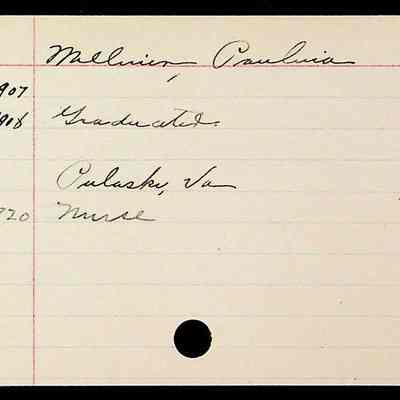 Paulina
907
908 Graduated.
Pulaski, Va
920 Nurse